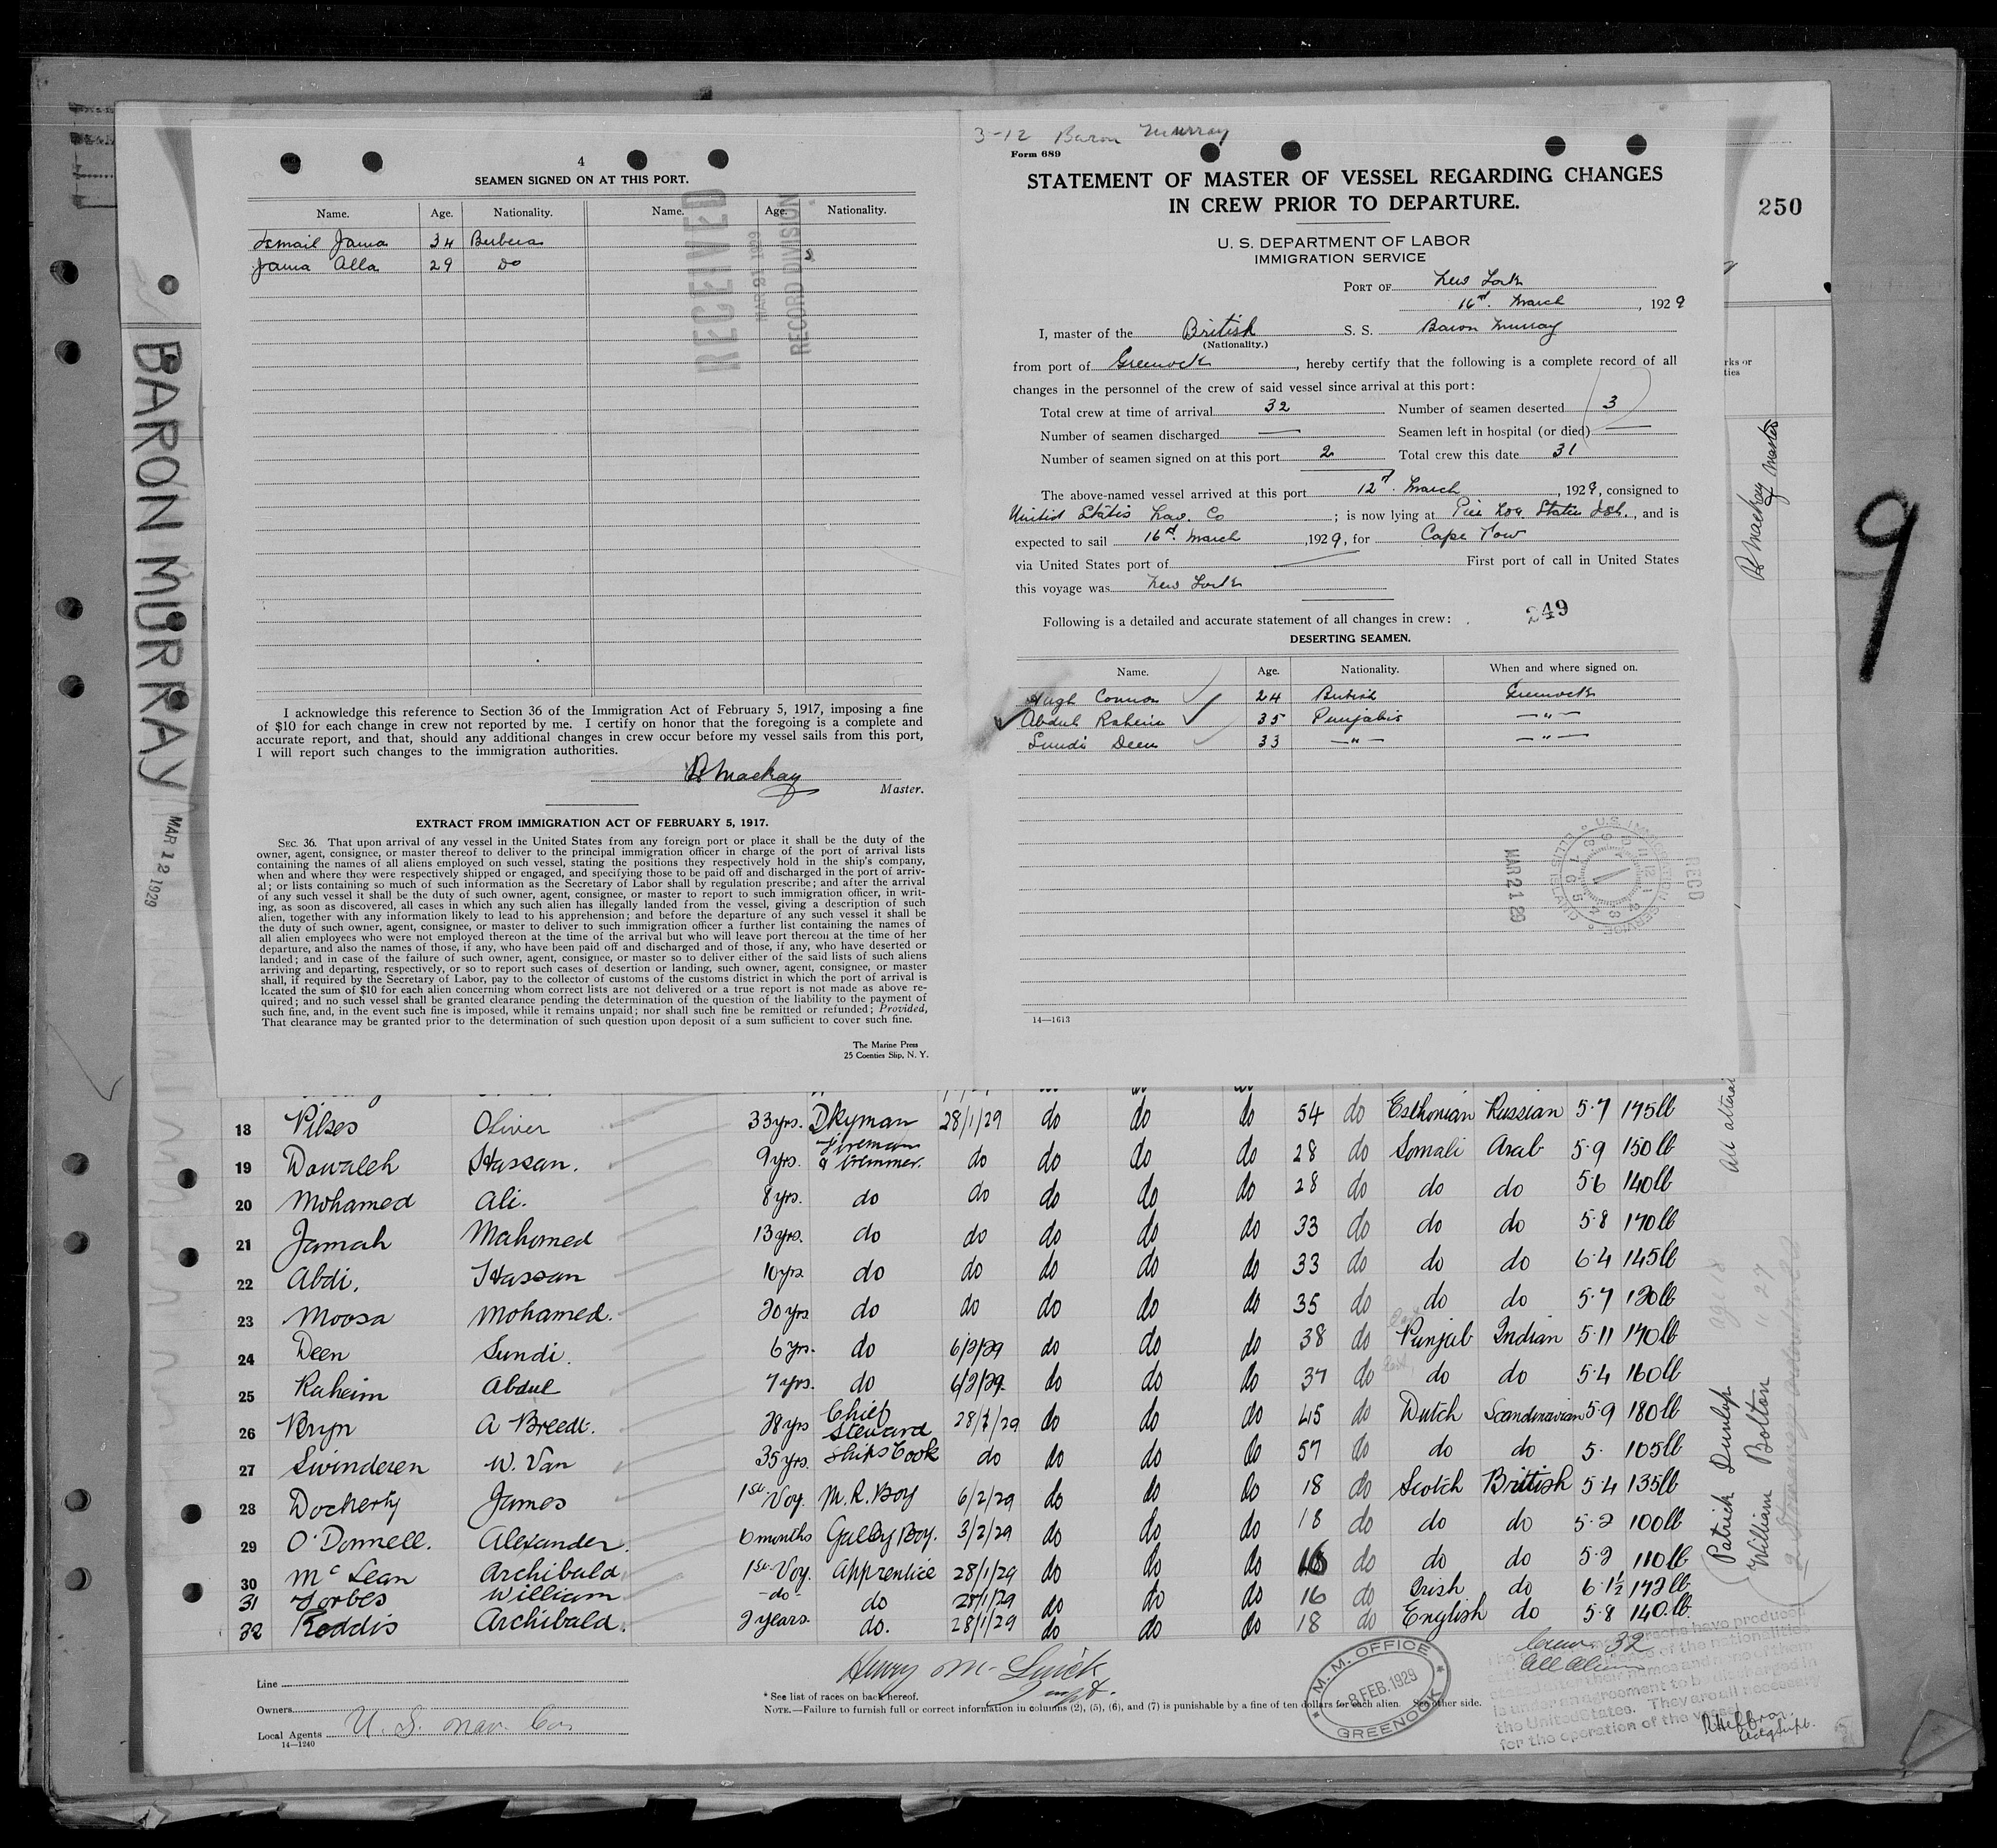 3-12 Baron Murray
4
SEAMEN SIGNED ON AT THIS PORT.
Name. Age. Nationality. Name. Age. Nationality.
Ismail Jama 34 Berbera
Jama Alla 29 Do
RECEIVED
RECORD DIVISION
I acknowledge this reference to Section 36 of the Immigration Act of February 5, 1917, imposing a fine
of $10 for each change in crew not reported by me. I certify on honor that the foregoing is a complete and
accurate report, and that, should any additional changes in crew occur before my vessel sails from this port,
I will report such changes to the immigration authorities.
R Mackay
Master.
EXTRACT FROM IMMIGRATION ACT OF FEBRUARY 5, 1917.
SEC. 36. That upon arrival of any vessel in the United States from any foreign port or place it shall be the duty of the
owner, agent, consignee, or master thereof to deliver to the principal immigration officer in charge of the port of arrival lists
containing the names of all aliens employed on such vessel, stating the positions they respectively hold in the ship's company,
when and where they were respectively shipped or engaged, and specifying those to be paid off and discharged in the port of arriv-
al; or lists containing so much of such information as the Secretary of Labor shall by regulation prescribe; and after the arrival
of any such vessel it shall be the duty of such owner, agent, consignee, or master to report to such immigration officer, in writ-
ing, as soon as discovered, all cases in which any such alien has illegally landed from the vessel, giving a description of such
alien, together with any information likely to lead to his apprehension; and before the departure of any such vessel it shall be
the duty of such owner, agent, consignee, or master to deliver to such immigration officer a further list containing the names of
all alien employees who were not employed thereon at the time of the arrival but who will leave port thereon at the time of her
departure, and also the names of those, if any, who have been paid off and discharged and of those, if any, who have deserted or
landed; and in case of the failure of such owner, agent, consignee, or master so to deliver either of the said lists of such aliens
arriving and departing, respectively, or so to report such cases of desertion or landing, such owner, agent, consignee, or master
shall, if required by the Secretary of Labor, pay to the collector of customs of the customs district in which the port of arrival is
located the sum of $10 for each alien concerning whom correct lists are not delivered or a true report is not made as above re-
quired; and no such vessel shall be granted clearance pending the determination of the question of the liability to the payment of
such fine, and, in the event such fine is imposed, while it remains unpaid; nor shall such fine be remitted or refunded; Provided,
That clearance may be granted prior to the determination of such question upon deposit of a sum sufficient to cover such fine.
The Marine Press
25 Coenties Slip, N. Y.
Form 689
STATEMENT OF MASTER OF VESSEL REGARDING CHANGES
IN CREW PRIOR TO DEPARTURE.
U. S. DEPARTMENT OF LABOR
IMMIGRATION SERVICE
PORT OF New York
16th March, 1929
I, master of the British S. S. Baron Murray
(Nationality.)
from port of Greenock, hereby certify that the following is a complete record of all
changes in the personnel of the crew of said vessel since arrival at this port:
Total crew at time of arrival 32 Number of seamen deserted 3
Number of seamen discharged — Seamen left in hospital (or died) —
Number of seamen signed on at this port 2 Total crew this date 31
The above-named vessel arrived at this port 12th March, 1929, consigned to
United States Nav. Co; is now lying at Pier Staten Isl., and is
expected to sail 16th March, 1929, for Cape Town
via United States port of — First port of call in United States
this voyage was New York
Following is a detailed and accurate statement of all changes in crew:
249
DESERTING SEAMEN.
Name. Age. Nationality. When and where signed on.
Hugh Connor 24 British Greenock
Abdul Raheim 35 Punjabis — " —
Sundi Deen 33 — " — — " —
MAR 21 29
RECD
14—1613
250
9
BARON MURRAY
MAR 12 1929
R Mackay Master
18 Pilses Oliver 33yrs. Dkyman 28/1/29 do do do 54 do Esthonian Russian 5·7 175lb
19 Dowaleh Hassan. 9yrs. fireman & trimmer. do do do do 28 do Somali Arab 5·9 150lb
20 Mohamed Ali. 8yrs. do do do do do 28 do do do 5·6 140lb
21 Jamah Mahomed 13yrs. do do do do do 33 do do do 5·8 170lb
22 Abdi. Hassan 10yrs do do do do do 33 do do do 6·4 145lb
23 Moosa Mohamed. 20yrs do do do do do 35 do do do 5·7 130lb
24 Deen Sundi. 6yrs. do 6/2/29 do do do 38 do Punjab Indian 5·11 170lb
25 Raheim Abdul 7yrs. do 6/2/29. do do do 37 do do do 5·4 160lb
26 Bryn A Breedt. 28yrs Chief Steward 28/1/29 do do do 45 do Dutch Scandinavian 5·9 180lb
27 Swinderen W. Van 35yrs. Ships Cook do do do do 57 do do do 5· 105lb
28 Docherty James 1st Voy. M.R. Boy 6/2/29 do do do 18 do Scotch British 5·4 135lb
29 O'Donnell. Alexander. 6months Galley Boy. 3/2/29 do do do 18 do do do 5·2 100lb
30 McLean Archibald 1st Voy. Apprentice 28/1/29 do do do 16 do do do 5·2 110lb
31 Forbes William -do- do 28/1/29 do do do 16 do Irish do 6·1½ 142lb
32 Roddis Archibald. 2years. do. 28/1/29 do do do 18 do English do 5·8 140lb.
Patrick Dunlop age 18
William Bolton " 27
Line
Owners
Local Agents U. S. Nav. Co.
14—1240
* See list of races on back hereof.
NOTE.—Failure to furnish full or correct information in columns (2), (5), (6), and (7) is punishable by a fine of ten dollars for each alien. See other side.
M. M. OFFICE
8 FEB. 1929
GREENOCK
Crew 32
All Alien